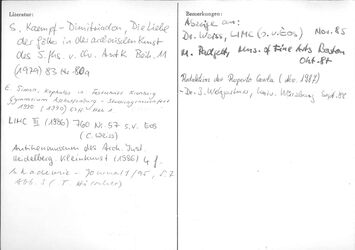 Literatur:
S. Kaempf-Dimitriadou, Die Liebe
der Götter in der attischen Kunst
des 5. Jhs. v. Chr. AntK Beih. 11
(1979) 83 Nr. 80a
E. Simon,
Gymnasium
1990 (1990)
LIMC III (1986) 760 Nr. 57 s.v. Eos
(C. Weiss)
Antikenmuseum des Arch. Inst.
Heidelberg Kleinkunst (1986) 4 f.
Akademie-Journal 1/95, S. 7
Abb. 3 (T. Hölscher)
Bemerkungen:
Abzüge an:
Dr. Weiss, LIMC (s.v. Eos) Nov. 85
M. Padgett, Mus. of Fine Arts Boston
Okt. 87
(Dez. 1987)
- Dr. S. Univ. Würzburg Sept. 88